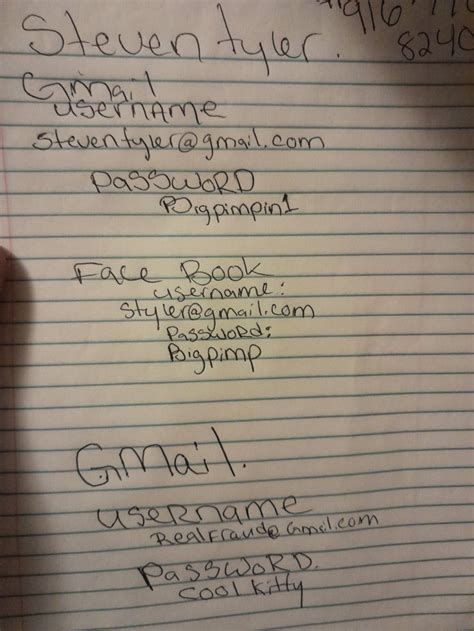 916
Steven tyler.
8240
Gmail
username
steventyler@gmail.com
PASSWORD
Bigpimpin1
Face Book
username:
styler@gmail.com
PassWord:
Bigpimp
GMail.
username
RealFraud@Gmail.com
PASSWORD.
cool kitty